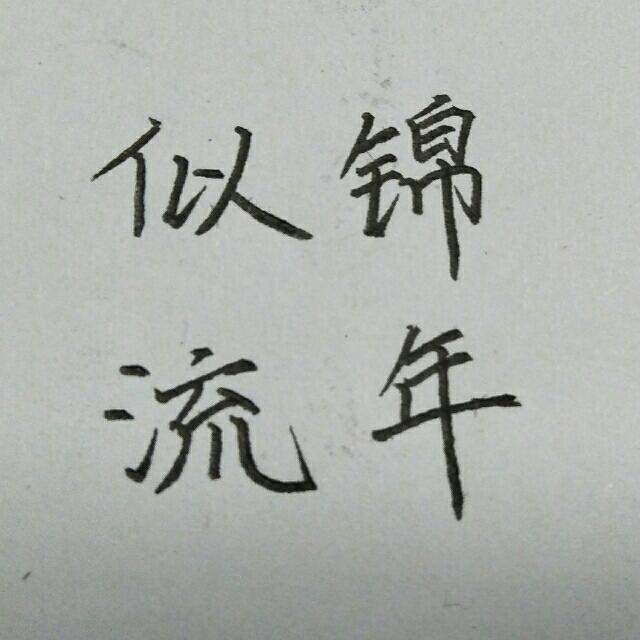 似锦
流年